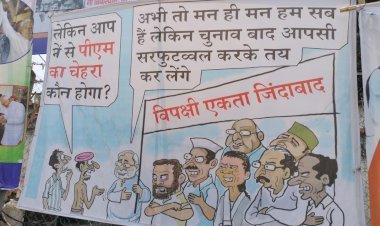 लेकिन आप
में से पीएम
का चेहरा
कौन होगा?
अभी तो मन ही मन हम सब
हैं लेकिन चुनाव बाद आपसी
सरफुटव्वल करके तय
कर लेंगे
विपक्षी एकता जिंदाबाद